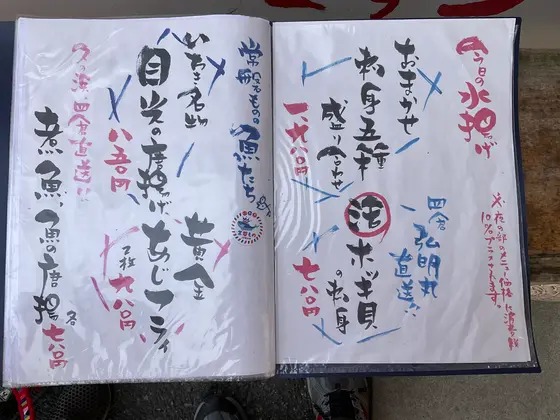 今日の水揚げ
※夜の部のメニュー価格に消費税
10%プラスされます。
おまかせ
刺身五種
盛り合わせ
一、九八〇円
四倉
弘明丸
直送!!
活ホッキ貝
の刺身
七八〇円
常磐もの
の魚たち
いわき名物
目光の唐揚げ
八五〇円
黄金
あじフライ
2枚 九八〇円
四倉直送!!
煮魚、魚の唐揚
各
七八〇円